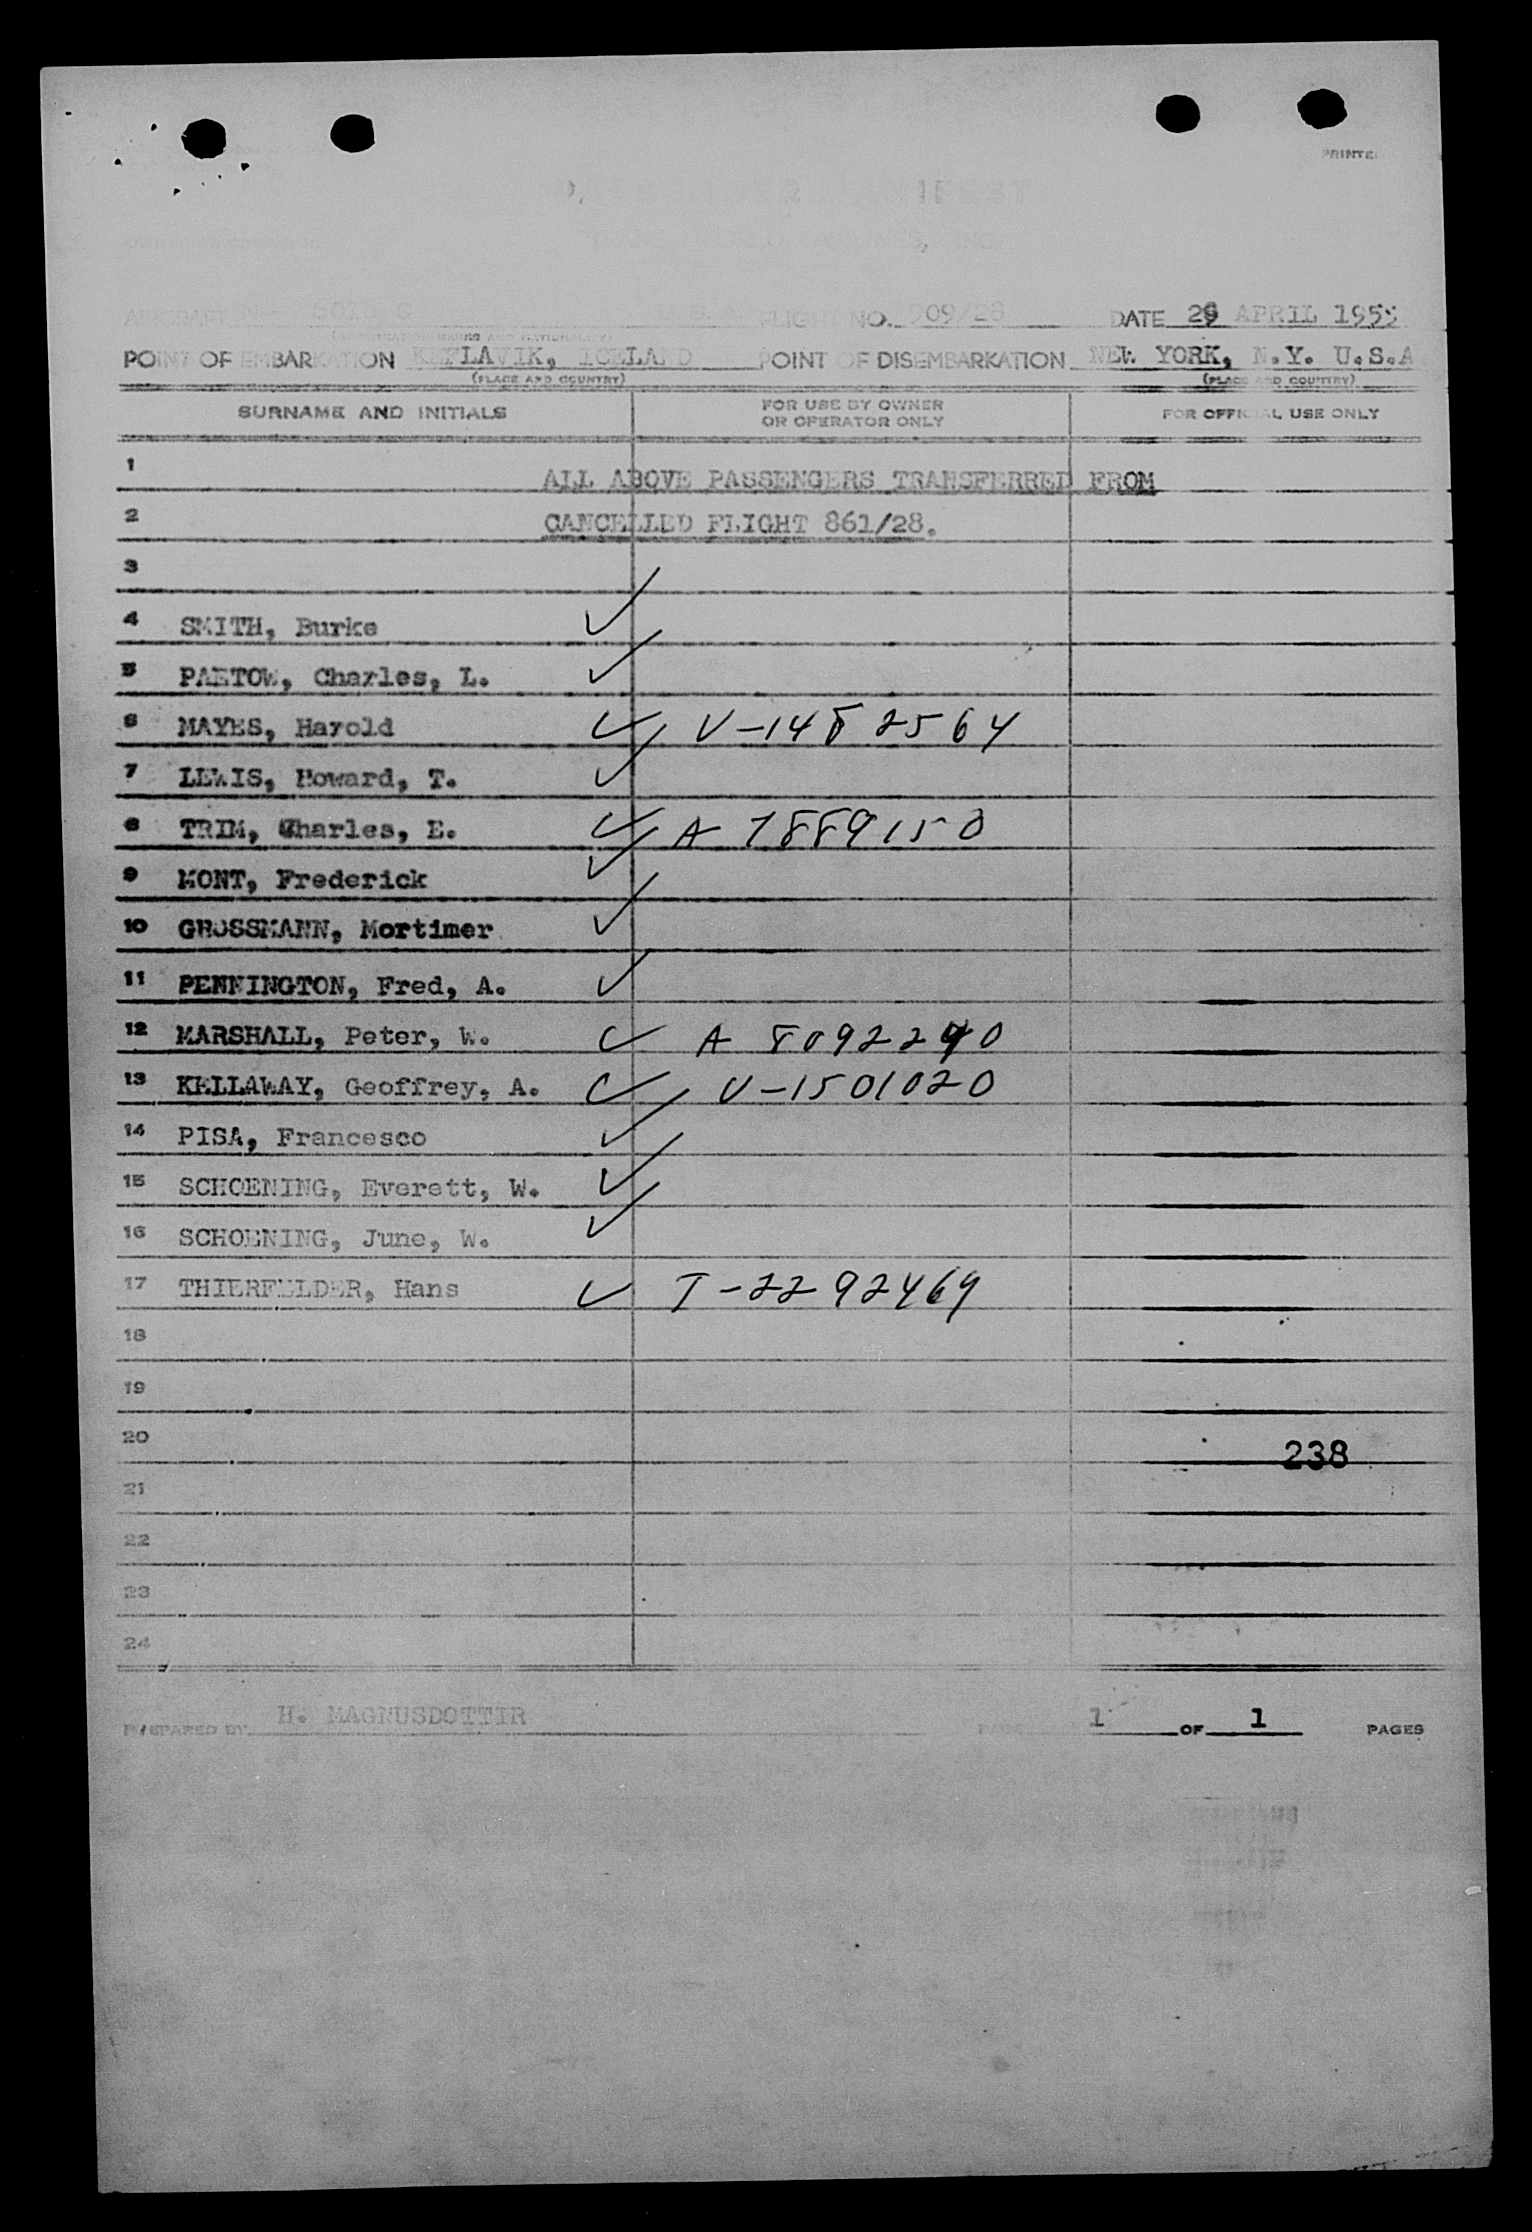 PRINTE
FLIGHT NO. 909/28 DATE 29 APRIL 1955
POINT OF EMBARKATION KEFLAVIK, ICELAND POINT OF DISEMBARKATION NEW YORK, N.Y. U.S.A
(PLACE AND COUNTRY) (PLACE AND COUNTRY)
SURNAME AND INITIALS FOR USE BY OWNER OR OPERATOR ONLY FOR OFFICIAL USE ONLY
1 ALL ABOVE PASSENGERS TRANSFERRED FROM
2 CANCELLED FLIGHT 861/28.
3
4 SMITH, Burke ✓
5 PAETOW, Charles, L. ✓
6 MAYES, Harold ✓ V-1482564
7 LEWIS, Howard, T. ✓
8 TRIM, Charles, E. ✓ A 7889150
9 MONT, Frederick ✓
10 GROSSMANN, Mortimer ✓
11 PENNINGTON, Fred, A. ✓
12 MARSHALL, Peter, W. ✓ A 8092290
13 KELLAWAY, Geoffrey, A. ✓ V-1501020
14 PISA, Francesco ✓
15 SCHOENING, Everett, W. ✓
16 SCHOENING, June, W. ✓
17 THIERFELDER, Hans ✓ T-2292469
18
19
20 238
21
22
23
24
PREPARED BY H. MAGNUSDOTTIR PAGE 1 OF 1 PAGES